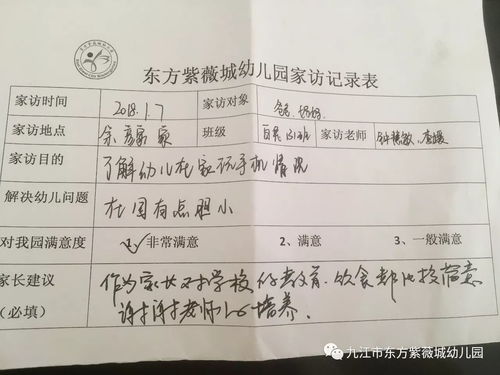 东方紫薇城幼儿园家访记录表
家访时间 2018.1.7 家访对象 爸爸、妈妈.
家访地点 余 家 班级 班 家访老师 钟慧敏、
家访目的 了解幼儿在家玩手机情况
解决幼儿问题 在园有点胆小
对我园满意度 1、非常满意 2、满意 3、一般满意
家长建议 作为家长对学校的教育.饮食都比较满意
(必填) 谢谢老师 培养.
九江市东方紫薇城幼儿园